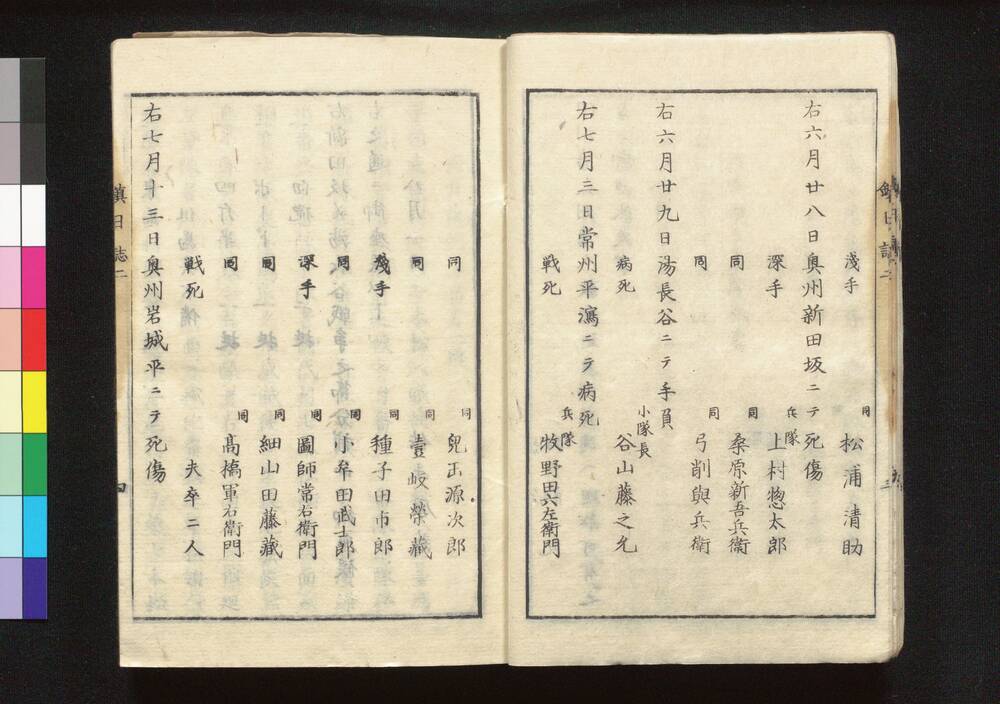 淺手 同 松浦清助
右六月廿八日奥州新田坂ニテ死傷
深手 兵隊 上村惣太郎
同 同 桑原新吾兵衞
同 同 弓削與兵衞
右六月廿九日湯長谷ニテ手負
病死 小隊長 谷山藤之允
右七月三日常州平潟ニテ病死
戰死 兵隊 牧野田六左衞門
同 同 兒玉源次郎
同 同 壹岐榮藏
淺手 同 種子田市郎
同 同 小牟田武士郎
深手 同 圖師常右衞門
同 同 細山田藤藏
同 同 髙橋軍右衞門
戰死 夫卒二人
右七月十三日奥州岩城平ニテ死傷
鎭日誌二
四